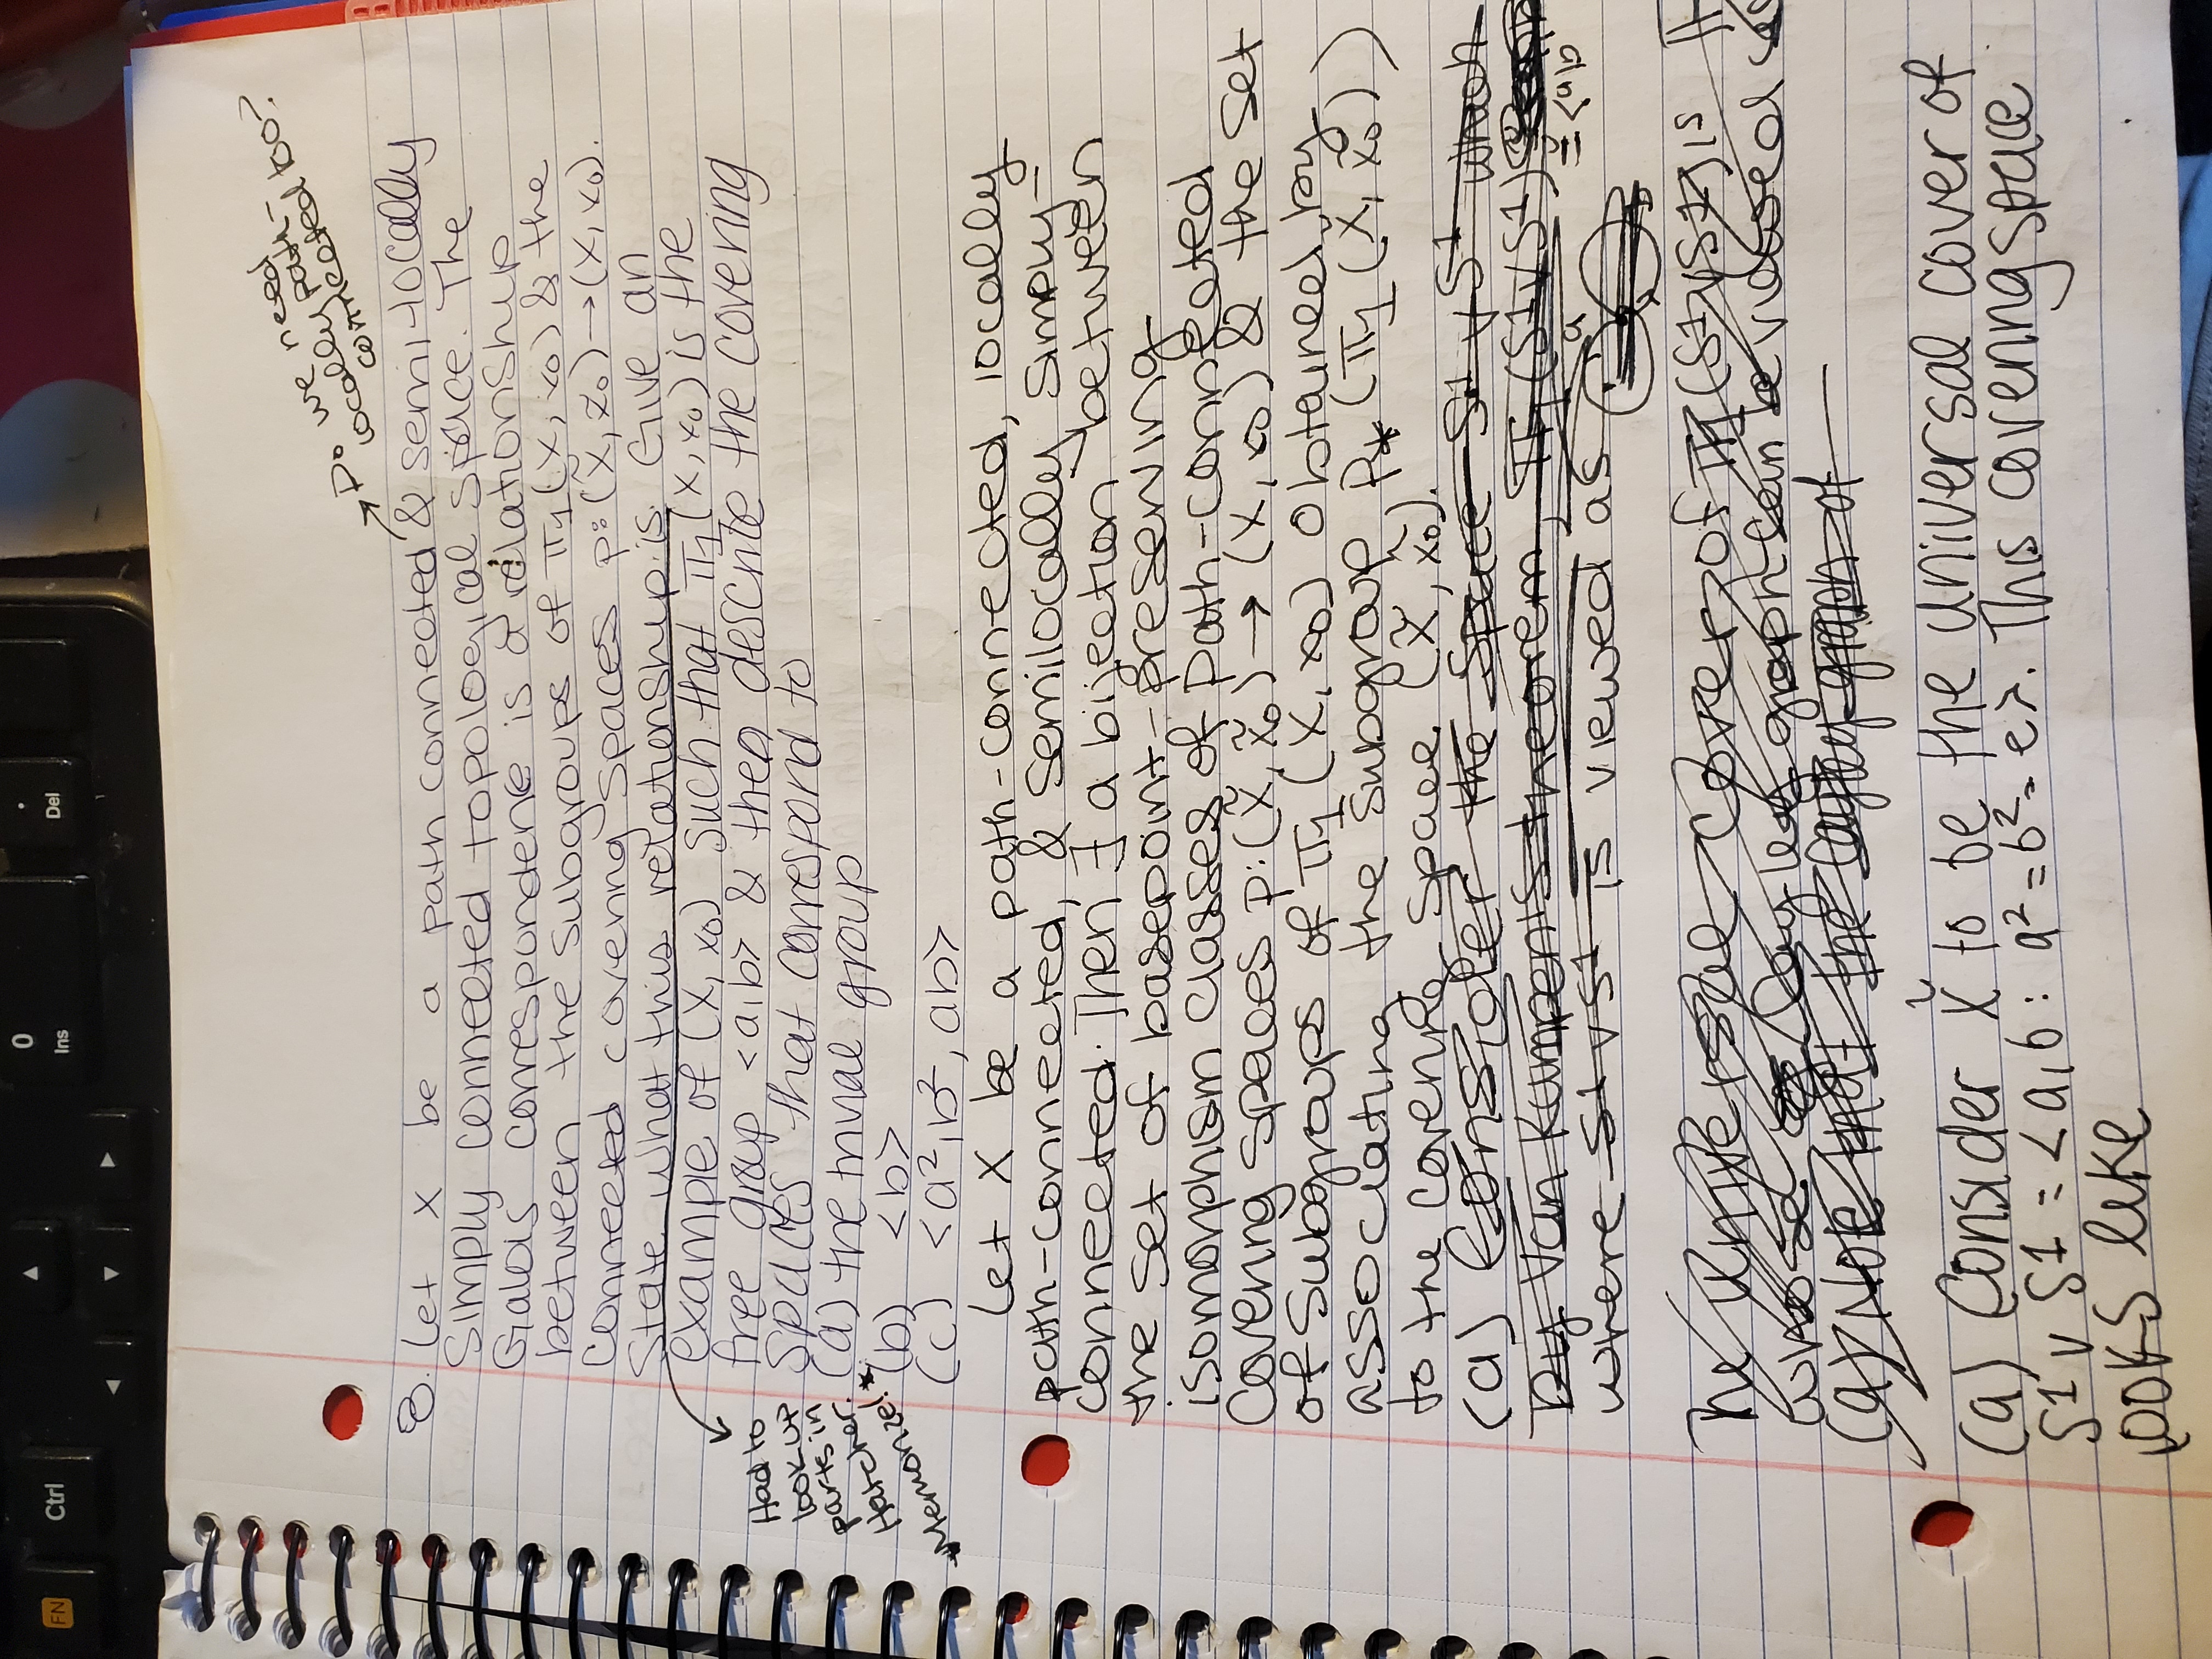 FN
Ctrl
▲
◄
▼
►
0
Ins
.
Del
Do we need
locally path-
connected too?
8. Let X be a path connected & semi-locally
simply connected topological space. The
Galois correspondence is a relationship
between the subgroups of π₁(X, x₀) & the
connected covering spaces p: (X̃, x̃₀) → (X, x₀).
State what this relationship is. Give an
example of (X, x₀) such that π₁(X, x₀) is the
free group <a,b> & then describe the covering
spaces that correspond to
(a) the trivial group
(b) <b>
(c) <a², b², ab>
Had to
look up
parts in
Hatcher.
Memorize!*
Let X be a path-connected, locally
path-connected, & semilocally simply-
connected. Then ∃ a bijection between
the set of basepoint-preserving
isomorphism classes of path-connected
covering spaces p: (X̃, x̃₀) → (X, x₀) & the set
of subgroups of π₁(X, x₀) obtained by
associating the subgroup p* (π₁(X̃, x̃₀))
to the covering space (X̃, x̃₀).
(a) Consider the space S¹ ∨ S¹ which
by Van Kampen's theorem, π₁(S¹∨S¹)
≅ <a,b
where S¹ ∨ S¹ is viewed as
a
b
The universal cover of π₁(S¹∨S¹) is
whose Cayley graph can be viewed as
(a) Note that the Cayley graph of
(a) Consider X̃ to be the universal cover of
S1 ∨ S1 = <a,b : a² = b² = e>. This covering space
looks like